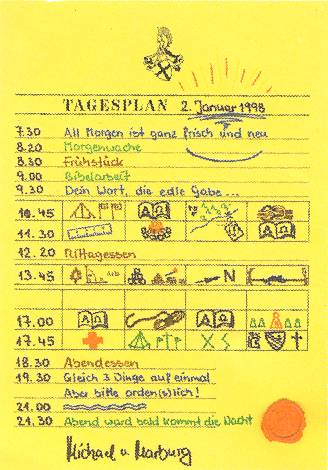 TAGESPLAN 2. Januar 1998
7.30 All Morgen ist ganz frisch und neu
8.20 Morgenwache
8.30 Frühstück
9.00 Bibelarbeit
9.30 Dein Wort, die edle Gabe ...
10.45 A Ω
11.30 A Ω
12.20 Mittagessen
13.45 N
17.00 A Ω A Ω
17.45
18.30 Abendessen
19.30 Gleich 3 Dinge auf einmal
Aber bitte orden(s)lich!
21.00
21.30 Abend ward bald kommt die Nacht
Michael v. Marburg